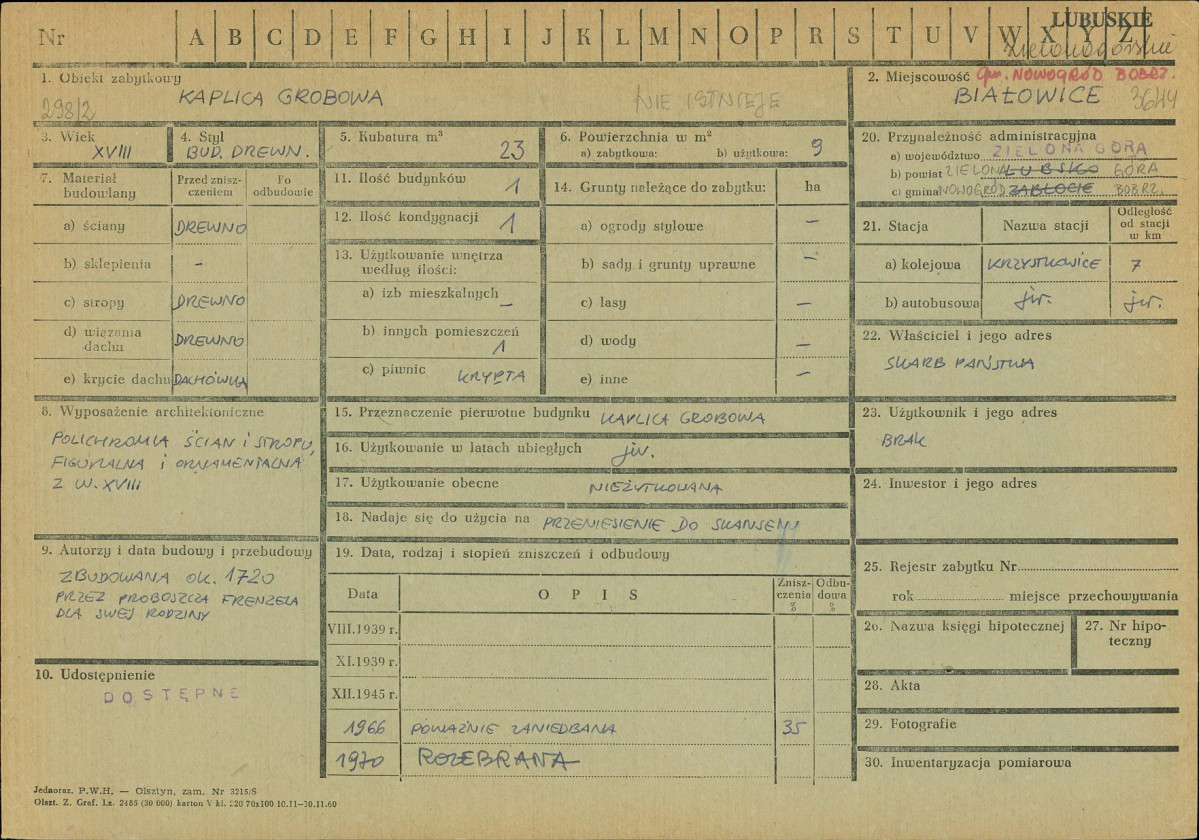 LUBUSKIE
Nr A B C D E F G H I J K L M N O P R S T U V W X Y Z
Zielonogórskie
1. Obiekt zabytkowy
KAPLICA GROBOWA
298/2
NIE ISTNIEJE
2. Miejscowość gm. NOWOGRÓD BOBRZ.
BIAŁOWICE 3644
3. Wiek
XVIII
4. Styl
BUD. DREWN.
5. Kubatura m³
23
6. Powierzchnia w m²
a) zabytkowa: b) użytkowa: 9
7. Materiał budowlany
Przed zniszczeniem
Po odbudowie
a) ściany DREWNO
b) sklepienia –
c) stropy DREWNO
d) wiązania dachu DREWNO
e) krycie dachu DACHÓWKA
8. Wyposażenie architektoniczne
POLICHROMIA ŚCIAN I STROPU,
FIGURALNA I ORNAMENTALNA
Z W. XVIII
9. Autorzy i data budowy i przebudowy
ZBUDOWANA OK. 1720
PRZEZ PROBOSZCZA FRENZELA
DLA SWEJ RODZINY
10. Udostępnienie
DOSTĘPNE
11. Ilość budynków 1
12. Ilość kondygnacji 1
13. Użytkowanie wnętrza
według ilości:
a) izb mieszkalnych –
b) innych pomieszczeń
1
c) piwnic KRYPTA
14. Grunty należące do zabytku: ha
a) ogrody stylowe –
b) sady i grunty uprawne –
c) lasy –
d) wody –
e) inne –
15. Przeznaczenie pierwotne budynku KAPLICA GROBOWA
16. Użytkowanie w latach ubiegłych jw.
17. Użytkowanie obecne NIEUŻYTKOWANA
18. Nadaje się do użycia na PRZENIESIENIE DO SKANSENU
19. Data, rodzaj i stopień zniszczeń i odbudowy
Data OPIS Zniszczenia % Odbudowa %
VIII.1939 r.
XI.1939 r.
XII.1945 r.
1966 POWAŻNIE ZANIEDBANA 35
1970 ROZEBRANA
20. Przynależność administracyjna
a) województwo ZIELONA GÓRA
b) powiat ZIELONA LUBSKO GÓRA
c) gmina NOWOGRÓD ZABŁOCIE BOBRZ.
21. Stacja Nazwa stacji Odległość od stacji w km
a) kolejowa KRZYSTKOWICE 7
b) autobusowa jw. jw.
22. Właściciel i jego adres
SKARB PAŃSTWA
23. Użytkownik i jego adres
BRAK
24. Inwestor i jego adres
25. Rejestr zabytku Nr
rok miejsce przechowywania
26. Nazwa księgi hipotecznej
27. Nr hipoteczny
28. Akta
29. Fotografie
30. Inwentaryzacja pomiarowa
Jednoraz. P.W.H. — Olsztyn, zam. Nr 3215/S
Olszt. Z. Graf. Lz. 2485 (30 000) karton V kl. 220 70x100 10.11—30.11.60